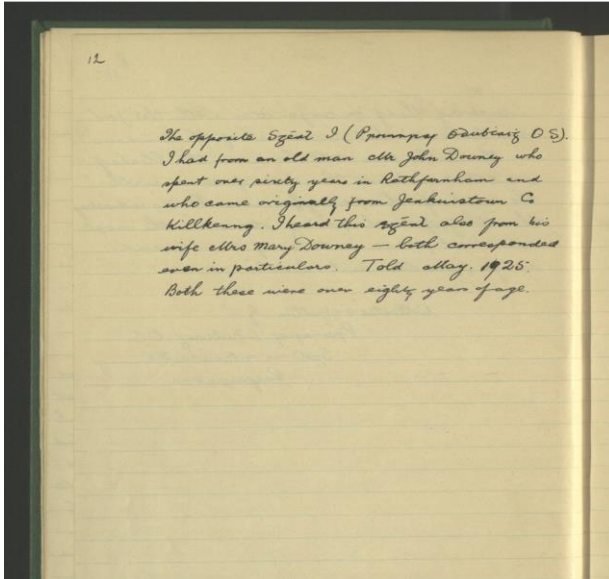 12
The opposite Sgéal I (Proinnsias OS).
I had from an old man Mr John Downey who
spent over sixty years in Rathfarnham and
who came originally from Jenkinstown Co
Killkenny. I heard this sgéal also from his
wife Mrs Mary Downey — both corresponded
even in particulars. Told May. 1925.
Both these were over eighty years of age.